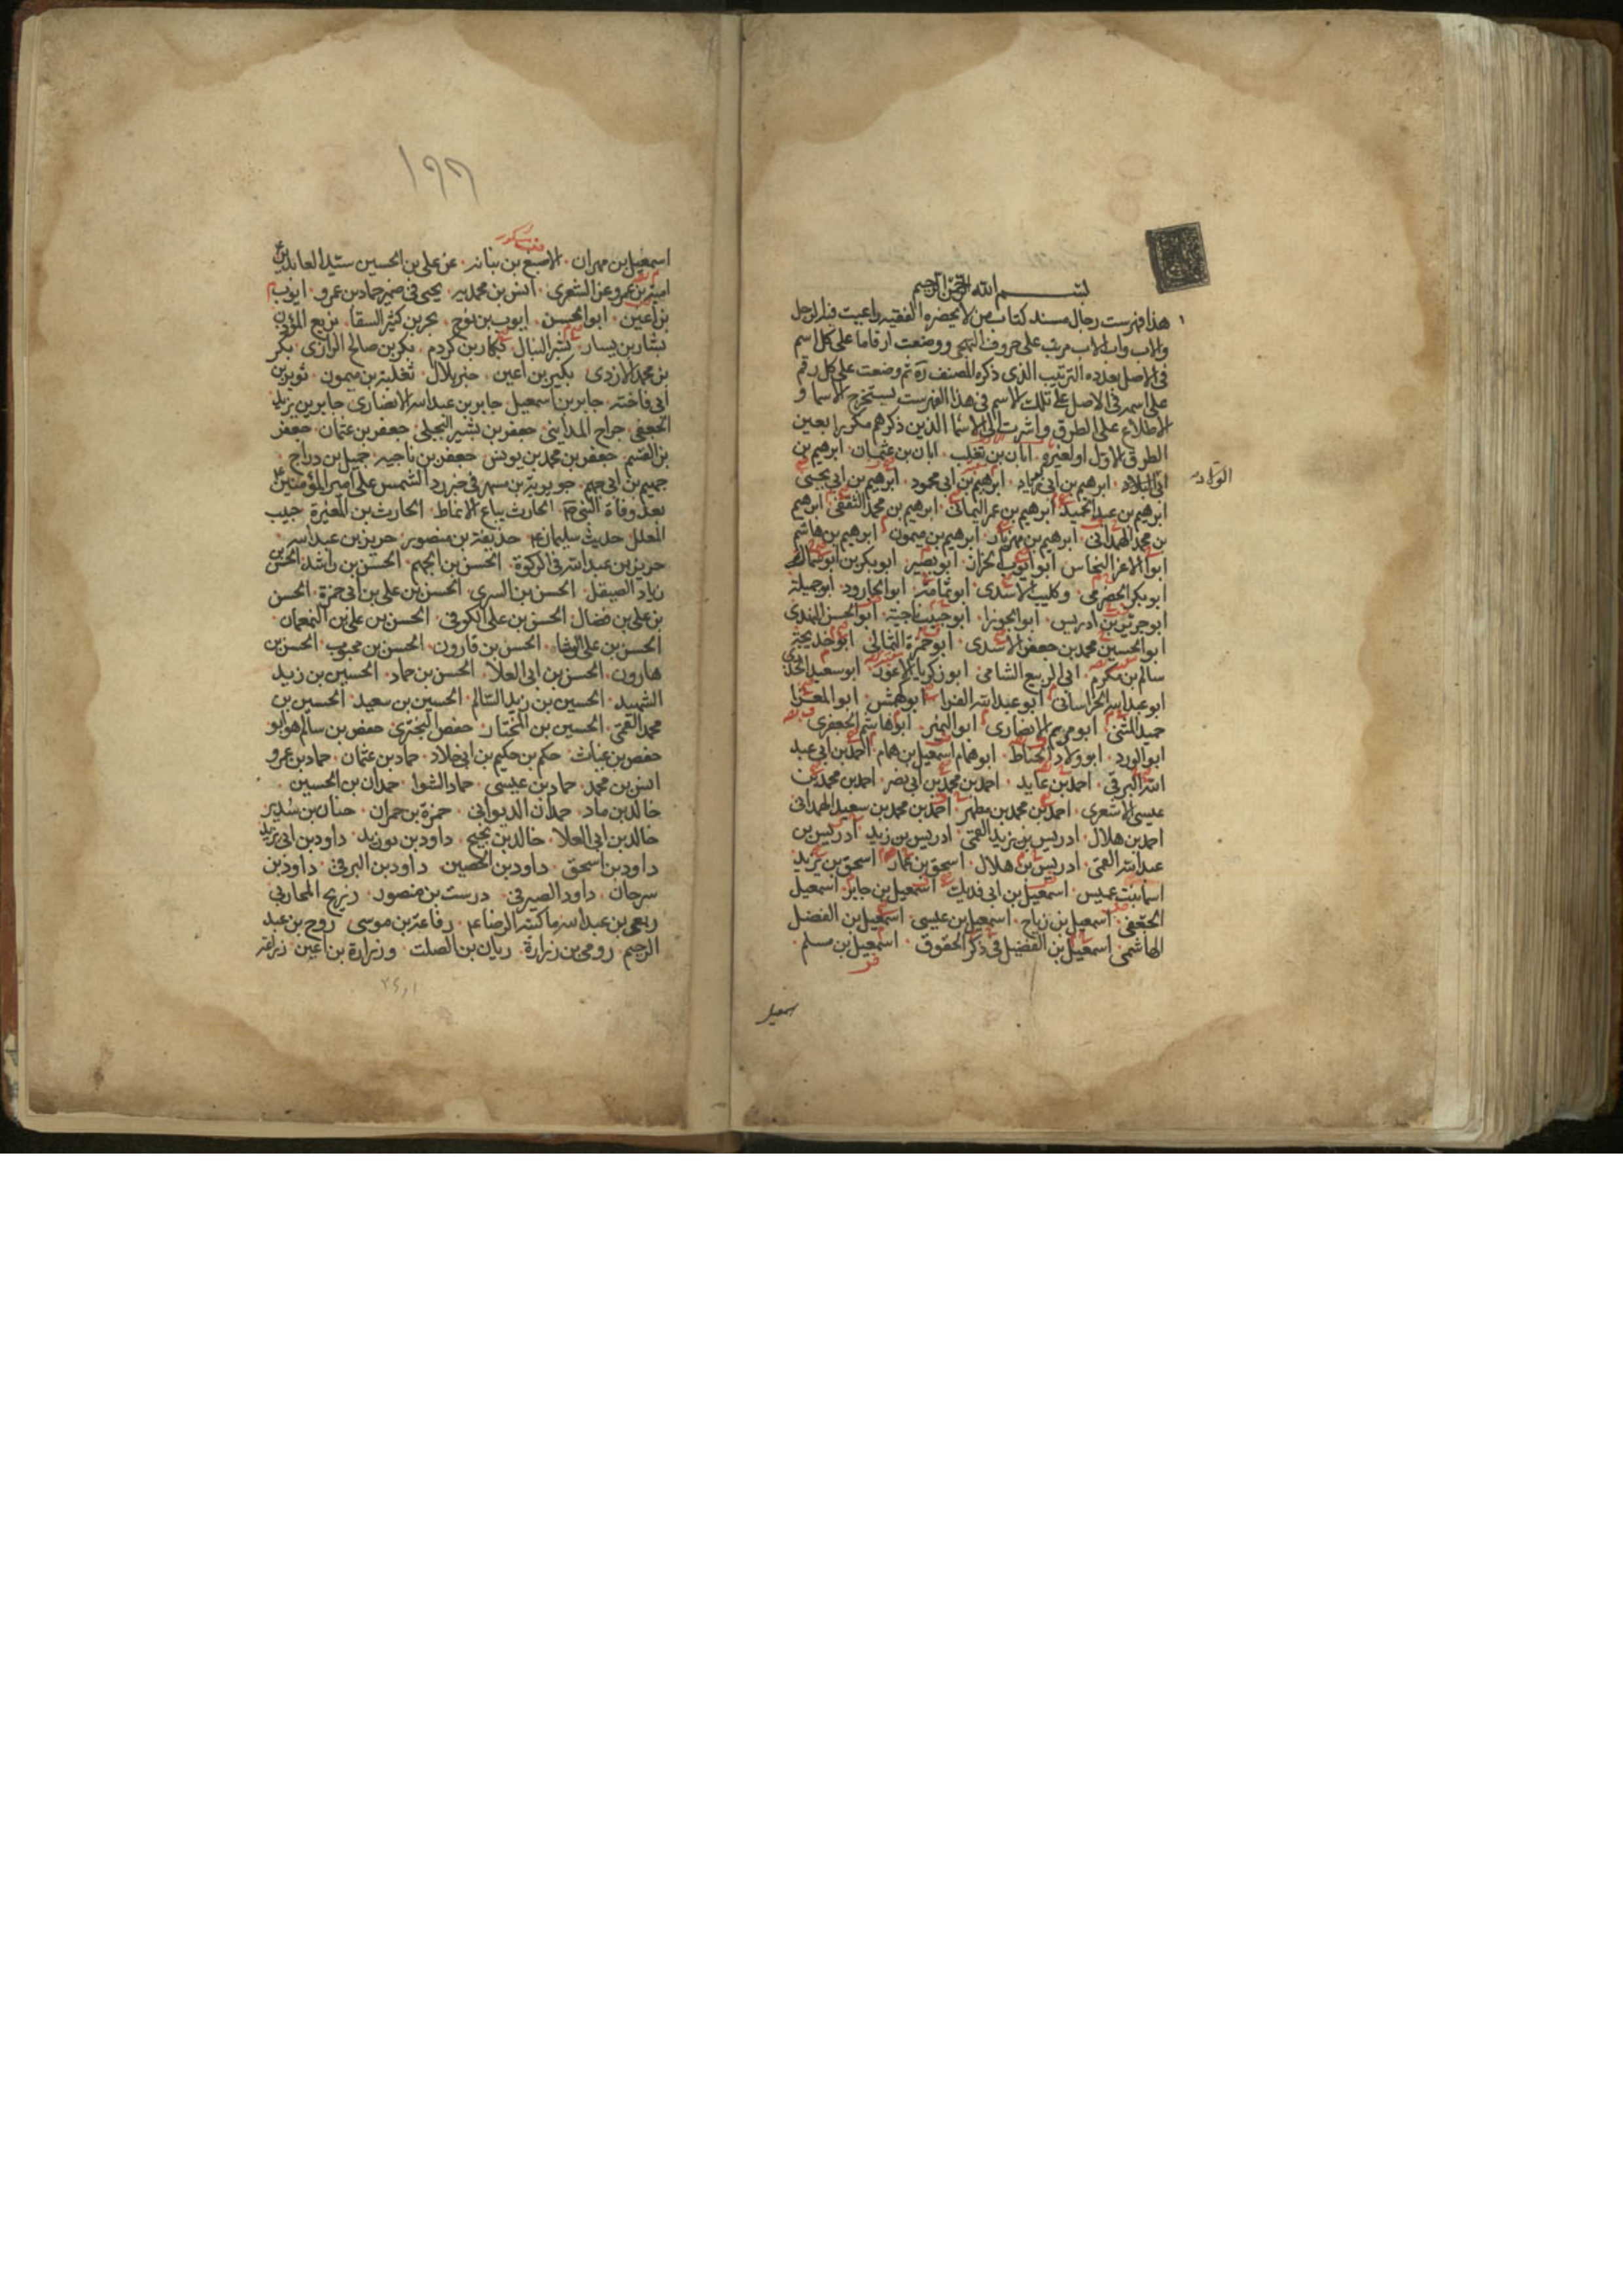 بسم الله الرحمن الرحيم
هذا فهرست رجال مسند كتاب من لا يحضره الفقيه راعيت فيه الرجل
والاب واب الاب مرتب على حروف التهجى ووضعت ارقاما على كل اسم
فى الاصل بعدده الترتيب الذى ذكره المصنف ره ثم وضعت على كل رقم
على اسم فى الاصل على تلك الاسم فى هذا الفهرست ليستخرج الاسما و
الاطلاع على الطرق واشرت الى الاسما الذين ذكرهم مكررا بعين
الطرق الاول او لغيره ابان بن تغلب ابان بن عثمان ابرهيم بن
ابى البلاد ابرهيم بن ابى زياد ابرهيم بن ابى محمود ابرهيم بن ابى يحيى
ابرهيم بن عبد الحميد ابرهيم بن عمر اليمانى ابرهيم بن محمد الثقفى ابرهيم
بن محمد الهمدانى ابرهيم بن مهزيار ابرهيم بن ميمون ابرهيم بن هاشم
ابو الاعز النحاس ابو ايوب الخزاز ابو بصير ابو بكر بن ابو سمال
ابو بكر الحضرمى وكليب الاسدى ابو ثمامة ابو الجارود ابو جميلة
ابو جرير بن ادريس ابو الجوزا ابو حبيب ناجية ابو الحسن النهدى
ابو الحسين محمد بن جعفر الاسدى ابو حمزة الثمالى ابو خديجة
سالم بن مكرم ابى الربيع الشامى ابو زكريا الاعور ابو سعيد الخدرى
ابو عبد الله الخراسانى ابو عبد الله الفرا ابو كهمش ابو المعزا
حميد المثنى ابو مريم الانصارى ابو النمير ابو هاشم الجعفرى
ابو الورد ابو ولاد الحناط ابو همام اسمعيل بن همام احمد بن ابى عبد
الله البرقى احمد بن عايد احمد بن محمد بن ابى نصر احمد بن محمد بن
عيسى الاشعرى احمد بن محمد بن مطهر احمد بن محمد بن سعيد الهمدانى
احمد بن هلال ادريس بن زيد القمى ادريس بن زيد ادريس بن
عبد الله القمى ادريس بن هلال اسحق بن عمار اسحق بن يزيد
اسما بنت عميس اسمعيل بن ابى فديك اسمعيل بن جابر اسمعيل
الجعفى اسمعيل بن رباح اسمعيل بن عيسى اسمعيل بن الفضل
الهاشمى اسمعيل بن الفضيل فى ذكر الحقوق اسمعيل بن مسلم
اسمعيل
١٩٦
اسمعيل بن مهران الاصبغ بن نباته عن على بن الحسين سيد العابدين
امية بن عمرو عن الشعيرى انس بن محمد يحيى فى ضمير حماد بن عمرو ايوب
بن اعين ابو الحسن ايوب بن نوح بحر بن كثير السقا بزيع المؤذن
بشار بن يسار بشير النبال بكار بن كردم بكر بن صالح الرازى بكر
بن محمد الازدى بكير بن اعين خبر بلال ثعلبة بن ميمون ثوير بن
ابى فاخته جابر بن اسمعيل جابر بن عبد الله الانصارى جابر بن يزيد
الجعفى جراح المداينى جعفر بن بشير البجلى جعفر بن عثمان جعفر
بن القسم جعفر بن محمد بن يونس جعفر بن ناجيه جميل بن دراج
جهيم بن ابى جهم جويرية بن مسهر فى خبر رد الشمس على امير المؤمنين
بعد وفاة النبى ص الحارث بياع الانماط الحارث بن المغيرة حبيب
المعلل حديث سليمان حذيفة بن منصور حريز بن عبد الله
حريز بن عبد الله فى الزكوة الحسن بن الجهم الحسن بن راشد الحسن بن
زياد الصيقل الحسن بن السرى الحسن بن على بن ابى حمزة الحسن
بن على بن فضال الحسن بن على الكوفى الحسن بن على بن النعمان
الحسن بن على الوشاء الحسن بن قارون الحسن بن محبوب الحسن بن
هارون الحسن بن ابى العلا الحسن بن حماد الحسين بن زيد
الشهيد الحسين بن زيد السالم الحسين بن سعيد الحسين بن
محمد القمى الحسين بن المختار حفص البخترى حفص بن سالم هو ابو
حفص بن غياث حكم بن حكيم بن ابى خلاد حماد بن عثمان حماد بن عمرو
انس بن محمد حماد بن عيسى حماد النوا حمدان بن الحسين
خالد بن ماد حمدان الديوانى حمزة بن حمران حنان بن سدير
خالد بن ابى العلا خالد بن نجيح داود بن بوزيد داود بن ابى يزيد
داود بن اسحق داود بن الحصين داود بن البرقى داود بن
سرحان داود الصيرفى درست بن منصور ذريح المحاربى
ربعى بن عبد الله ما كتبه الرضا رفاعة بن موسى روح بن عبد
الرحيم رومى بن زرارة ريان بن الصلت و زرارة بن اعين زرعة